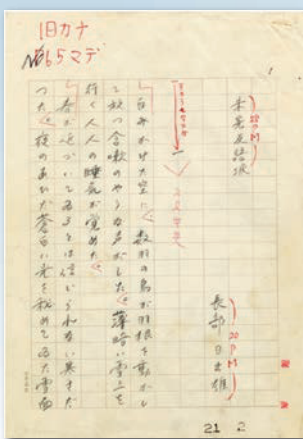 旧カナ
No65マデ
津軽世去れ節
長部日出雄
一
白みかけた空に、数羽の鳥が羽根を動かし
て放つ含嗽のやうな声がした。薄暗い雪上を
行く人人の睡気が覚めた。
春が近づいてゐるとは信じられない寒さだ
つた。夜のあひだ蒼白い光を秘めてゐた雪面
21 2